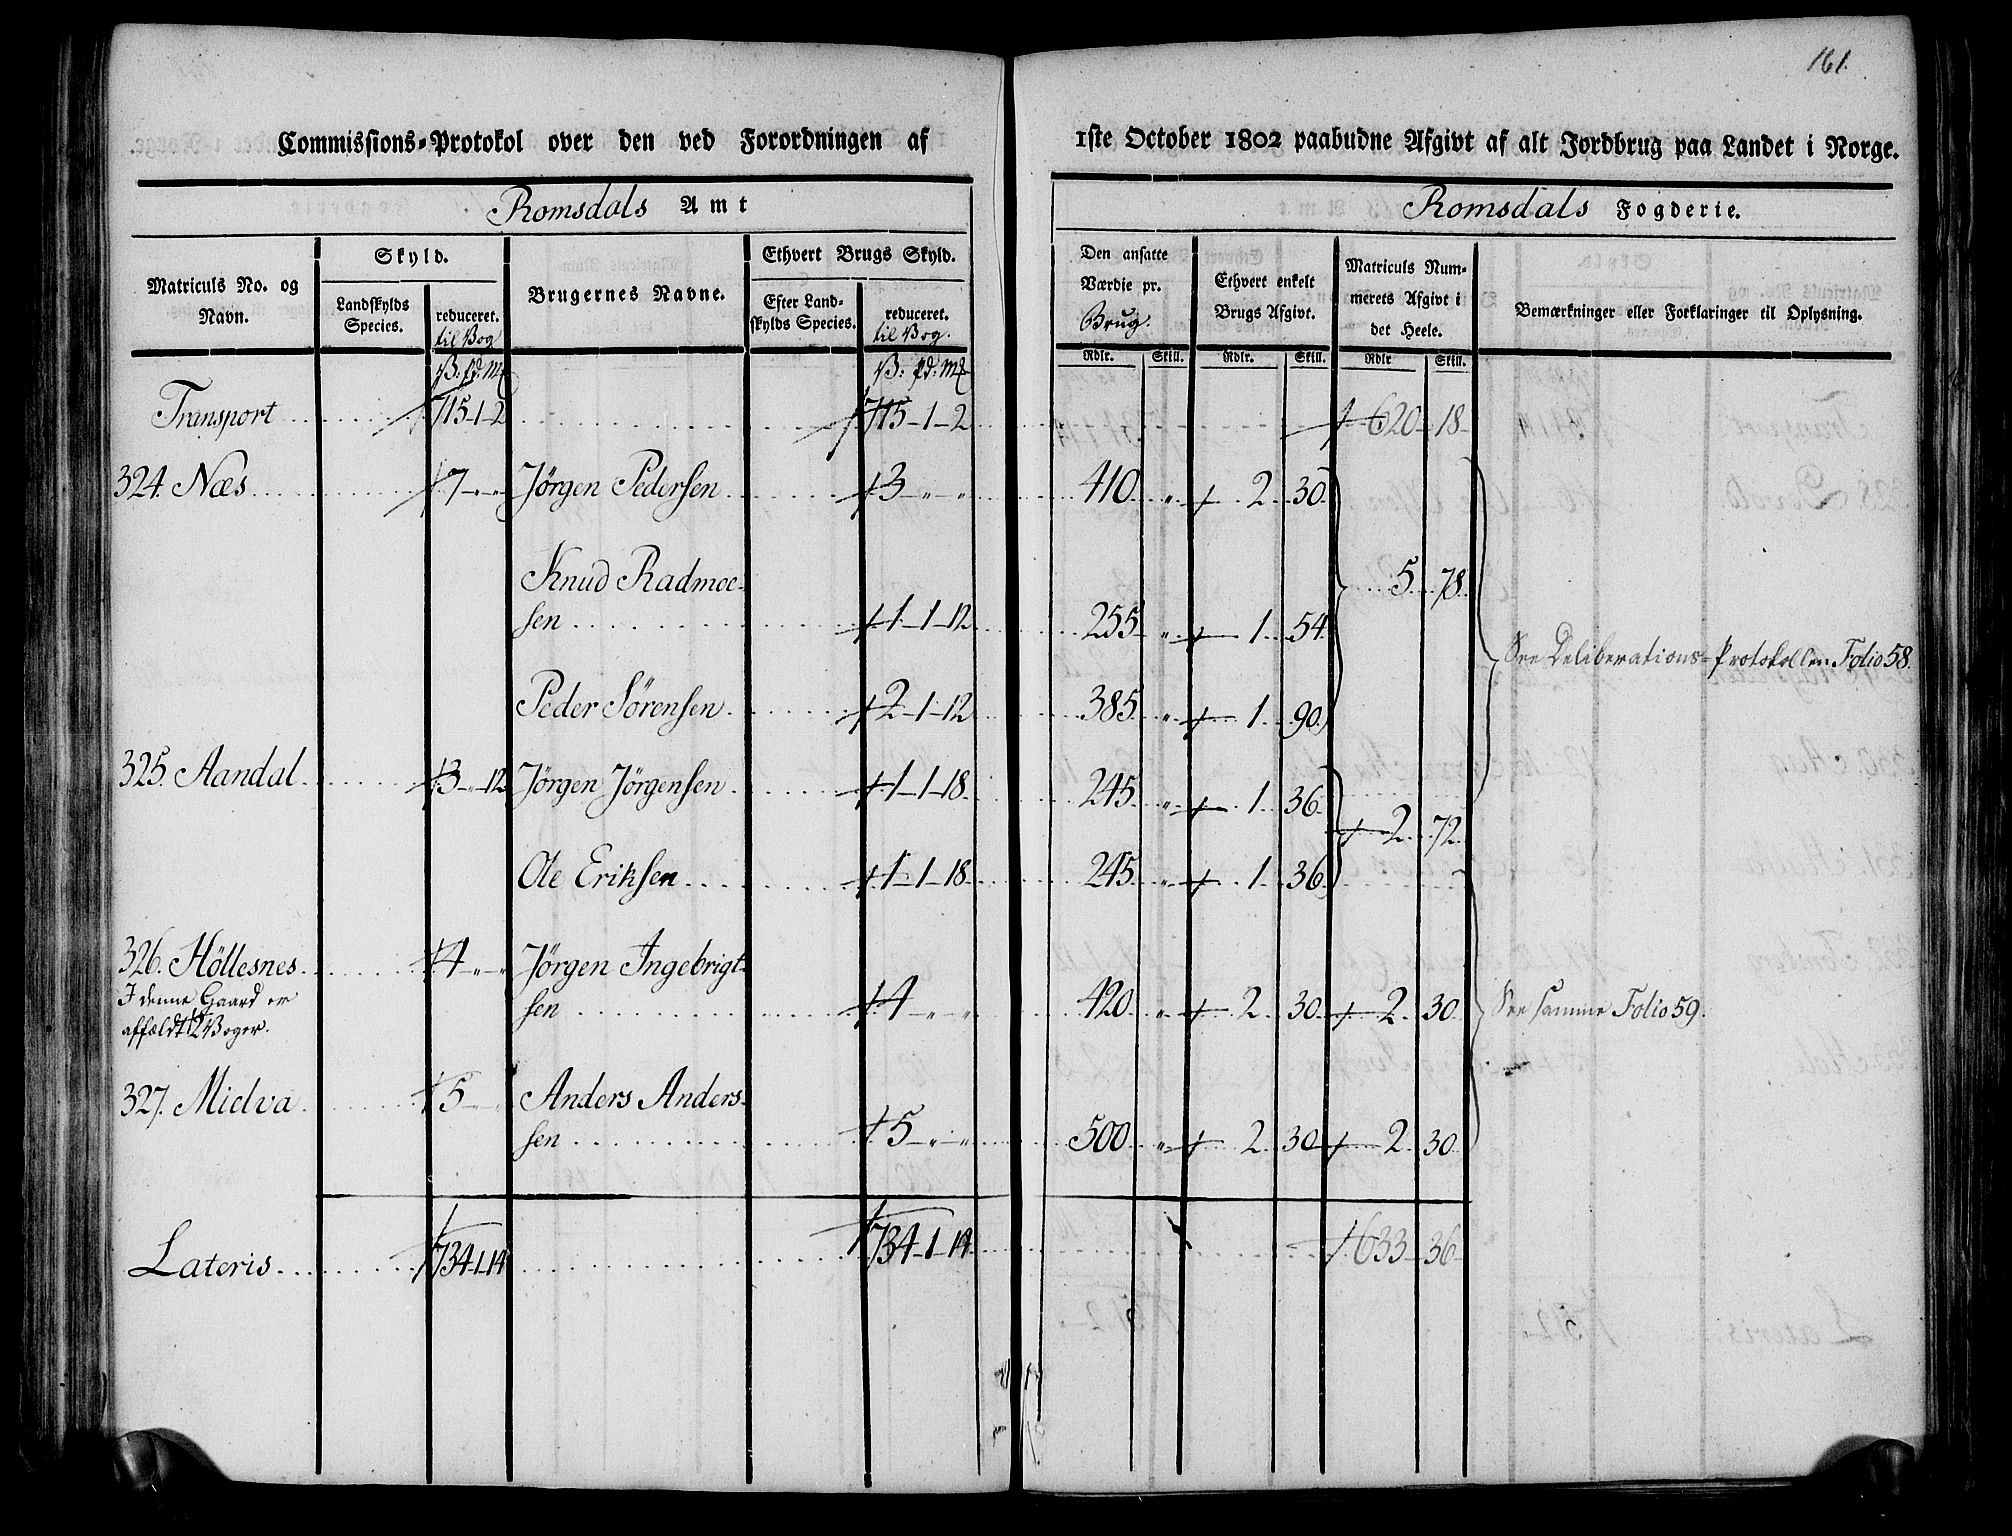 161.
Commissions-Protokol over den ved Forordningen af 1ste October 1802 paabudne Afgivt af alt Jordbrug paa Landet i Norge.
Romsdals Amt
Romsdals Fogderie.
Matriculs No. og Navn.
Skyld.
Landskylds Species.
reduceret. til Vog
Brugernes Navne.
Ethvert Brugs Skyld.
Efter Landskylds Species.
reduceret. til Vog.
Den ansatte Værdie pr. Brug.
Ethvert enkelt Brugs Afgivt.
Matriculs Nummerets Afgivt i det Heele.
Bemærkninger eller Forklaringer til Oplysning.
V: pd: Mk V: pd: Mk Rdlr. Skill. Rdlr. Skill. Rdlr Skill.
Transport 715-1-2 715-1-2 620 18
324. Næs 7 - " - " Jörgen Pedersen 3 - " - " 410 " 2 30
Knud Radmoe-
sen 1-1-12 255 " 1 54 5 78
See Deliberations-Protokollen Folio 58.
Peder Sörensen 2-1-12 385 " 1 90
325. Aandal 3-"-12 Jörgen Jörgensen 1-1-18 245 " 1 36
2 72
Ole Eriksen 1-1-18 245 " 1 36
326. Höllesnes 4 - " - " Jörgen Ingebrigt-
I denne Gaard er sen 4 - " - " 420 " 2 30 2 30 See samme Folio 59.
affældt 2 Voger.
327. Midva 5 Anders Anders-
sen 5 - " - " 500 " 2 30 2 30
Lateris 734-1-14 734-1-14 633 36